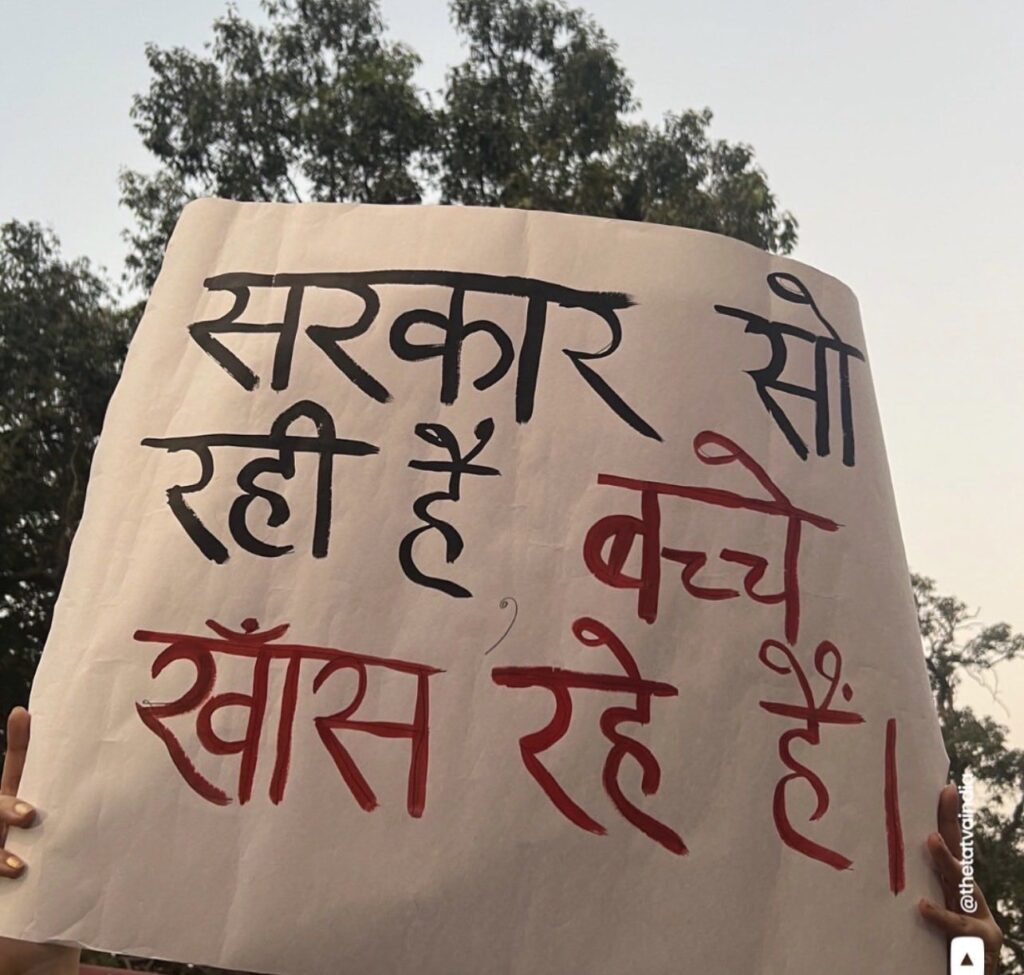 सरकार सो
रही है बच्चे
खाँस रहे हैं।
@thetatvaindia